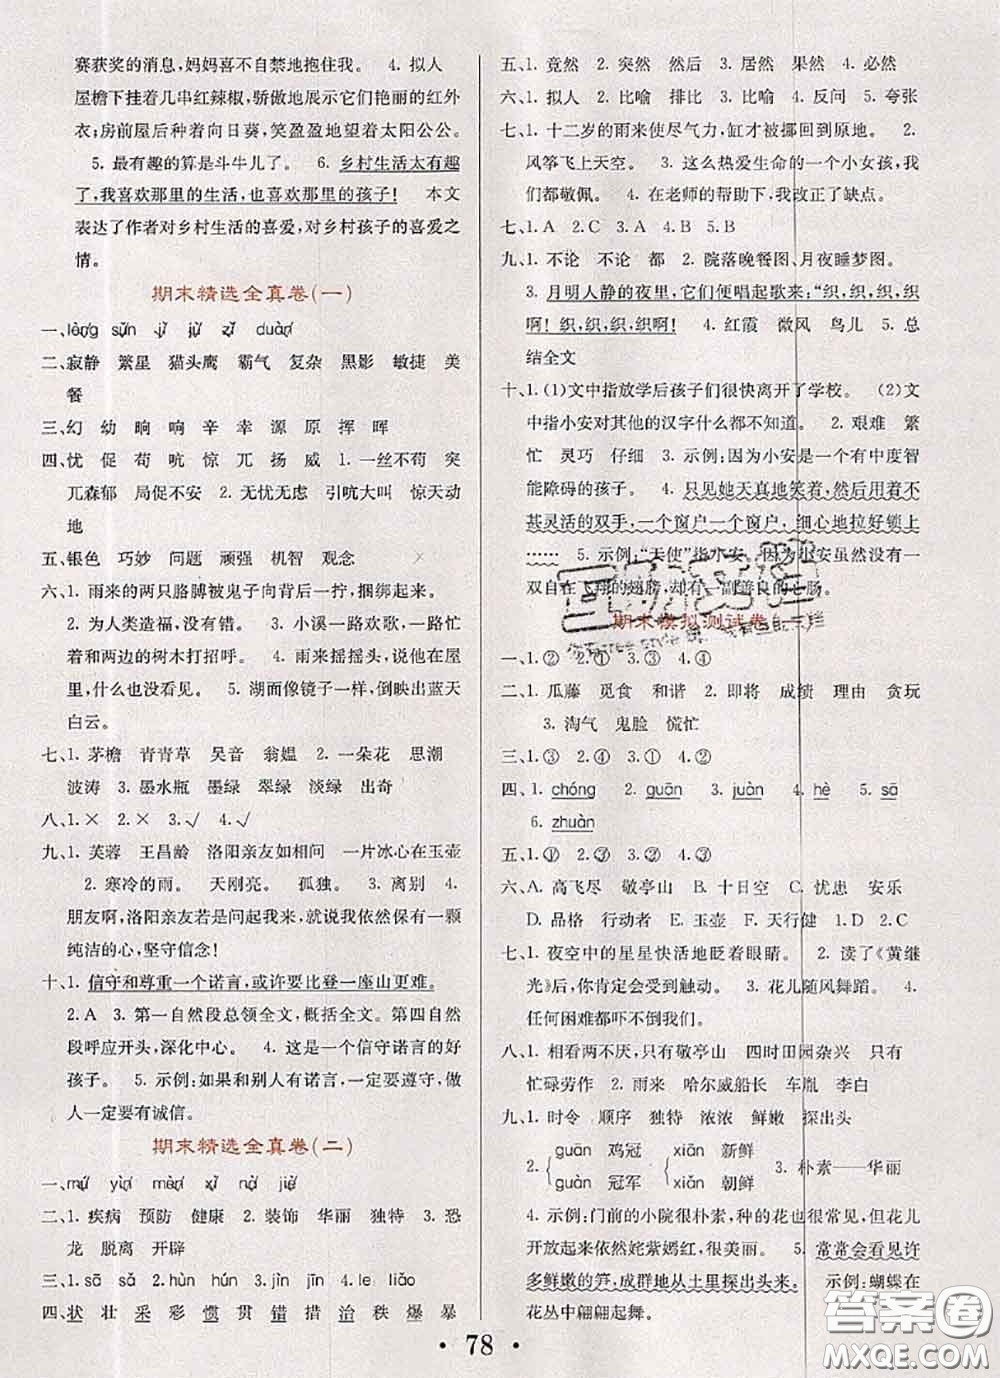 赛获奖的消息,妈妈喜不自禁地抱住我。 4. 拟人
屋檐下挂着几串红辣椒,骄傲地展示它们艳丽的红外
衣;房前屋后种着向日葵,笑盈盈地望着太阳公公。
5. 最有趣的算是斗牛儿了。 6. 乡村生活太有趣
了,我喜欢那里的生活,也喜欢那里的孩子! 本文
表达了作者对乡村生活的喜爱,对乡村孩子的喜爱之
情。
期末精选全真卷(一)
二、寂静 繁星 猫头鹰 霸气 复杂 黑影 敏捷 美
餐
三、幻 幼 晌 响 辛 幸 源 原 挥 晖
四、忧 促 苟 吭 惊 兀 扬 威 1. 一丝不苟 突
兀森郁 局促不安 2. 无忧无虑 引吭大叫 惊天动
地
五、银色 巧妙 问题 顽强 机智 观念
六、1. 雨来的两只胳膊被鬼子向背后一拧,捆绑起来。
2. 为人类造福,没有错。 3. 小溪一路欢歌,一路忙
着和两边的树木打招呼。 4. 雨来摇摇头,说他在屋
里,什么也没看见。 5. 湖面像镜子一样,倒映出蓝天
白云。
七、1. 茅檐 青青草 吴音 翁媪 2. 一朵花 思潮
波涛 3. 墨水瓶 墨绿 翠绿 淡绿 出奇
八、1.× 2.× 3.√ 4.√
九、1. 芙蓉 王昌龄 洛阳亲友如相问 一片冰心在玉壶
2. 寒冷的雨。 天刚亮。 孤独。 3. 离别 4.
朋友啊,洛阳亲友若是问起我来,我依然保有一颗
纯洁的心,坚守信念!
十、1. 信守和尊重一个诺言,或许要比登一座山更难。
2.A 3. 第一自然段总领全文,概括全文。第四自然
段呼应开头,深化中心。 4. 这是一个信守诺言的好
孩子。 5. 示例:如果和别人有诺言,一定要遵守,做
人一定要有诚信。
期末精选全真卷(二)
二、1. 疾病 预防 健康 2. 装饰 华丽 独特 3. 恐
龙 脱离 开辟
三、1. sā sǎ 2. hùn hún 3. jìn jīn 4. le liǎo
四、状 壮 采 彩 惯 贯 错 措 治 秩 爆 暴
五、1. 竟然 2. 突然 然后 3. 居然 果然 4. 必然
六、1. 拟人 2. 比喻 排比 3. 比喻 4. 反问 5. 夸张
七、1. 十二岁的雨来使尽气力,缸才被挪回到原地。 2.
风筝飞上天空。 3. 这么热爱生命的一个小女孩,我
们都敬佩。 4. 在老师的帮助下,我改正了缺点。
七、1.A 2.C 3.A 4.B 5.B
九、1. 不论 不论 都 2. 院落晚餐图、月夜睡梦图。
3. 月明人静的夜里,它们便唱起歌来:“织,织,织,织
啊! 织,织,织,织啊! 4. 红霞 微风 鸟儿 5. 总
结全文
十、1. (1)文中指放学后孩子们很快离开了学校。 (2)文
中指小安对其他的汉字什么都不知道。 2. 艰难 繁
忙 灵巧 仔细 3. 示例:因为小安是一个有中度智
能障碍的孩子。 4. 只见她天真地笑着,然后用着不
甚灵活的双手,一个窗户一个窗户,细心地拉好锁上
…… 5. 示例:“天使”指小安。 因为小安虽然没有一
双自在飞翔的翅膀,却有一副善良的心肠。
期末模拟测试卷(一)
一、1.② 2.① 3.① 4.②
二、1. 瓜藤 觅食 和谐 2. 即将 成绩 理由 贪玩
3. 淘气 鬼脸 慌忙
三、1.③ 2.④ 3.① 4.②
四、1. chóng 2. guān 3. juàn 4. hè 5. sā
6. zhuàn
五、1.① 2.③ 3.② 4.③
六、A. 高飞尽 敬亭山 B. 十日空 C. 忧患 安乐
D. 品格 行动者 E. 玉壶 F. 天行健 1.D 2.C
七、1. 夜空中的星星快活地眨着眼睛。 2. 读了《黄继
光》后,你肯定会受到触动。 3. 花儿随风舞蹈。 4.
任何困难都吓不倒我们。
八、1. 相看两不厌,只有敬亭山 四时田园杂兴 只有
忙碌劳作 2. 雨来 哈尔威船长 车胤 李白
九、1. 时令 顺序 独特 浓浓 鲜嫩 探出头
2. guān 鸡冠 guàn 冠军 xiān 新鲜 xiǎn 朝鲜 3. 朴素——华丽
4. 示例:门前的小院很朴素,种的花也很常见,但花儿
开放起来依然姹紫嫣红,很美丽。 5. 常常会看见许
多鲜嫩的笋,成群地从土里探出头来。 示例:蝴蝶在
花丛中翩翩起舞。
• 78 •
答案圈
MXQE.COM